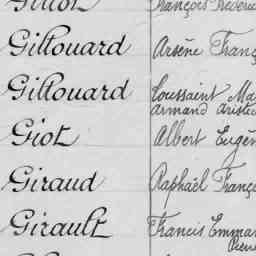 Gillouard Arsène Franç
Gillouard Toussaint Ma
armand aristid
Giot Albert Eugèn
Giraud Raphaël Franço
Girault Francis Emman